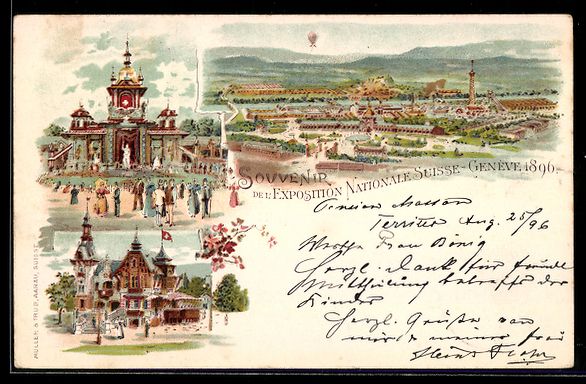 SOUVENIR
DE L'EXPOSITION NATIONALE SUISSE - GENÈVE 1896.
Pension Masson
Territet Aug. 25/96
Werthe Frau König
Herzl. Dank für freundl
Mittheilung betreffs der
Kinder
Herzl. Grüße von
mir & meiner Frau
MÜLLER & TRÜB, AARAU, SUISSE.